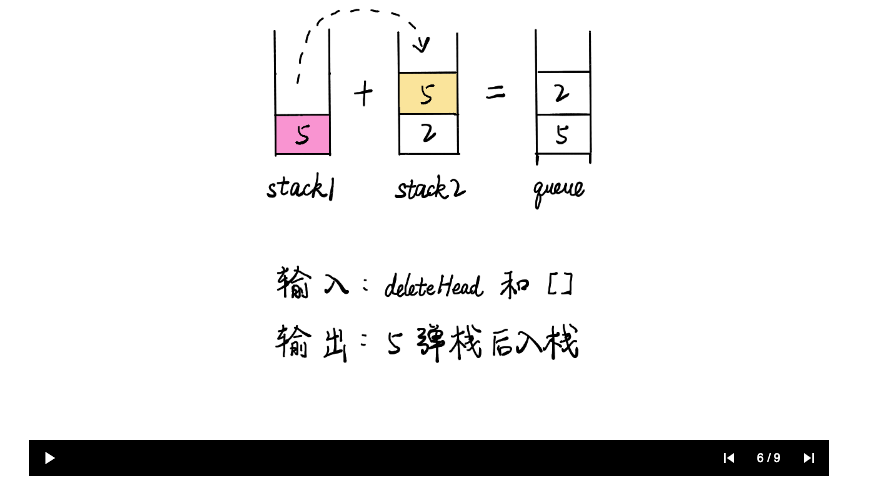 5 + 5 = 2
5 2 5
stack1 stack2 queue
输入: deleteHead 和 []
输出: 5 弹栈后入栈
6 / 9